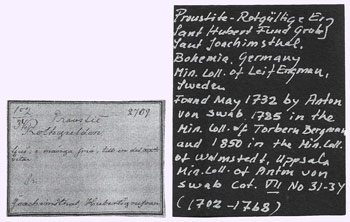 157 2709
34 Proustit
Rothgülden
Joachimsthal, Hubertigrufvan
Proustite-Rotgültige Erz
Sant Hubert Fund Grube
Sant Joachimsthal,
Bohemia, Germany
Min. Coll. of Leif Engman,
Sweden
Found May 1732 by Anton
von Swab 1735 in the
Min. Coll. of Torbern Bergman
and 1850 in the Min. Coll.
of Walmstedt, Uppsala
Min. Coll. of Anton von
Swab Cat. VII No 31-34
(1702-1768)